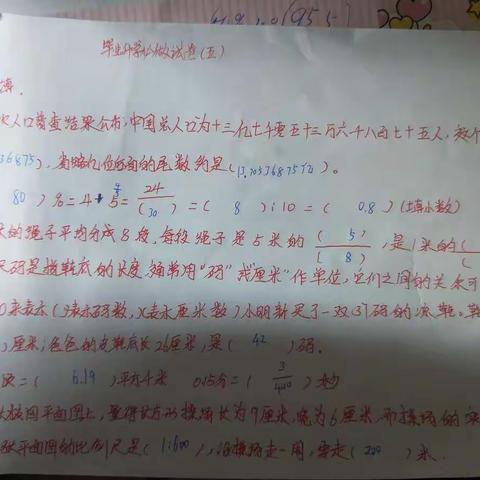 毕业升学模拟试卷(五)
填.
次人口普查结果公布,中国总人口为十三亿七千零五十三万六千八百七十五人,这个
36875),省略亿位后面的尾数约是(13.70536875亿)。
80)%=4÷5=24/(30)=(8):10=(0.8)(填小数)
米的绳子平均分成8段,每段绳子是5米的(5)/(8),是1米的(
尺码是指鞋底的长度,通常用“码”或“厘米”作单位,它们之间的关系可
0来表示(y表示码数,x表示厘米数)小明新买了一双37码的凉鞋,鞋
)厘米;爸爸的皮鞋底长26厘米,是(42)码.
顷=(6.19)平方千米 0.15分=(3/400)秒
校园平面图上,量得长方形操场长为9厘米,宽为6厘米,而操场的实
张平面图的比例尺是(1:600),沿操场走一周,要走(200)米.